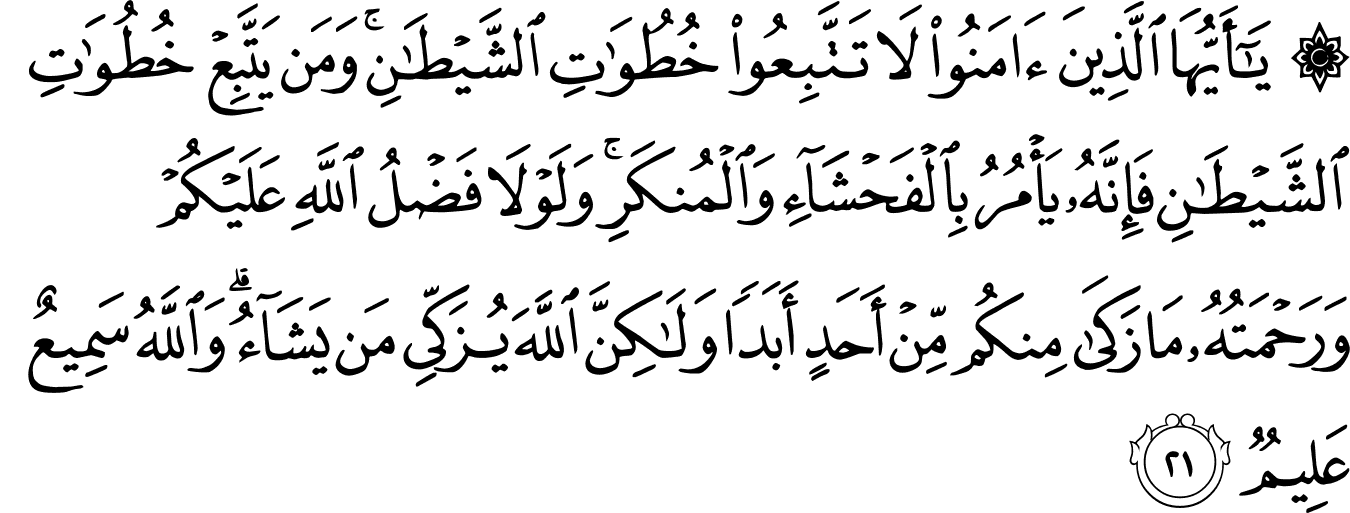 ۞ يَـٰٓأَيُّهَا ٱلَّذِينَ ءَامَنُوا۟ لَا تَتَّبِعُوا۟ خُطُوَٰتِ ٱلشَّيْطَـٰنِ ۚ وَمَن يَتَّبِعْ خُطُوَٰتِ
ٱلشَّيْطَـٰنِ فَإِنَّهُۥ يَأْمُرُ بِٱلْفَحْشَآءِ وَٱلْمُنكَرِ ۚ وَلَوْلَا فَضْلُ ٱللَّهِ عَلَيْكُمْ
وَرَحْمَتُهُۥ مَا زَكَىٰ مِنكُم مِّنْ أَحَدٍ أَبَدًا وَلَـٰكِنَّ ٱللَّهَ يُزَكِّى مَن يَشَآءُ ۗ وَٱللَّهُ سَمِيعٌ
عَلِيمٌ ٢١